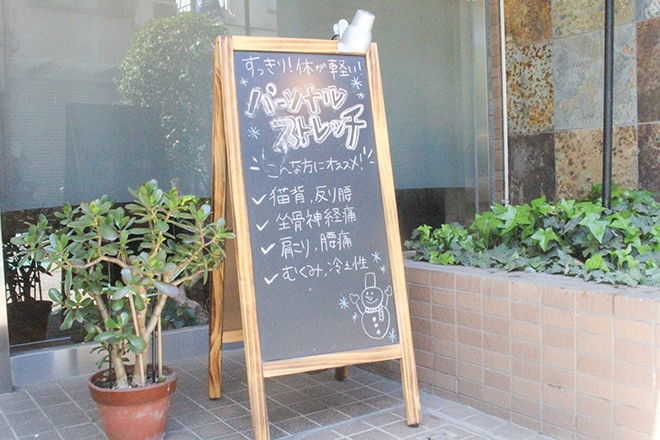 すっきり!体が軽い!
パーソナル
ストレッチ
こんな方にオススメ!
✓猫背、反り腰
✓坐骨神経痛
✓肩こり、腰痛
✓むくみ、冷え性